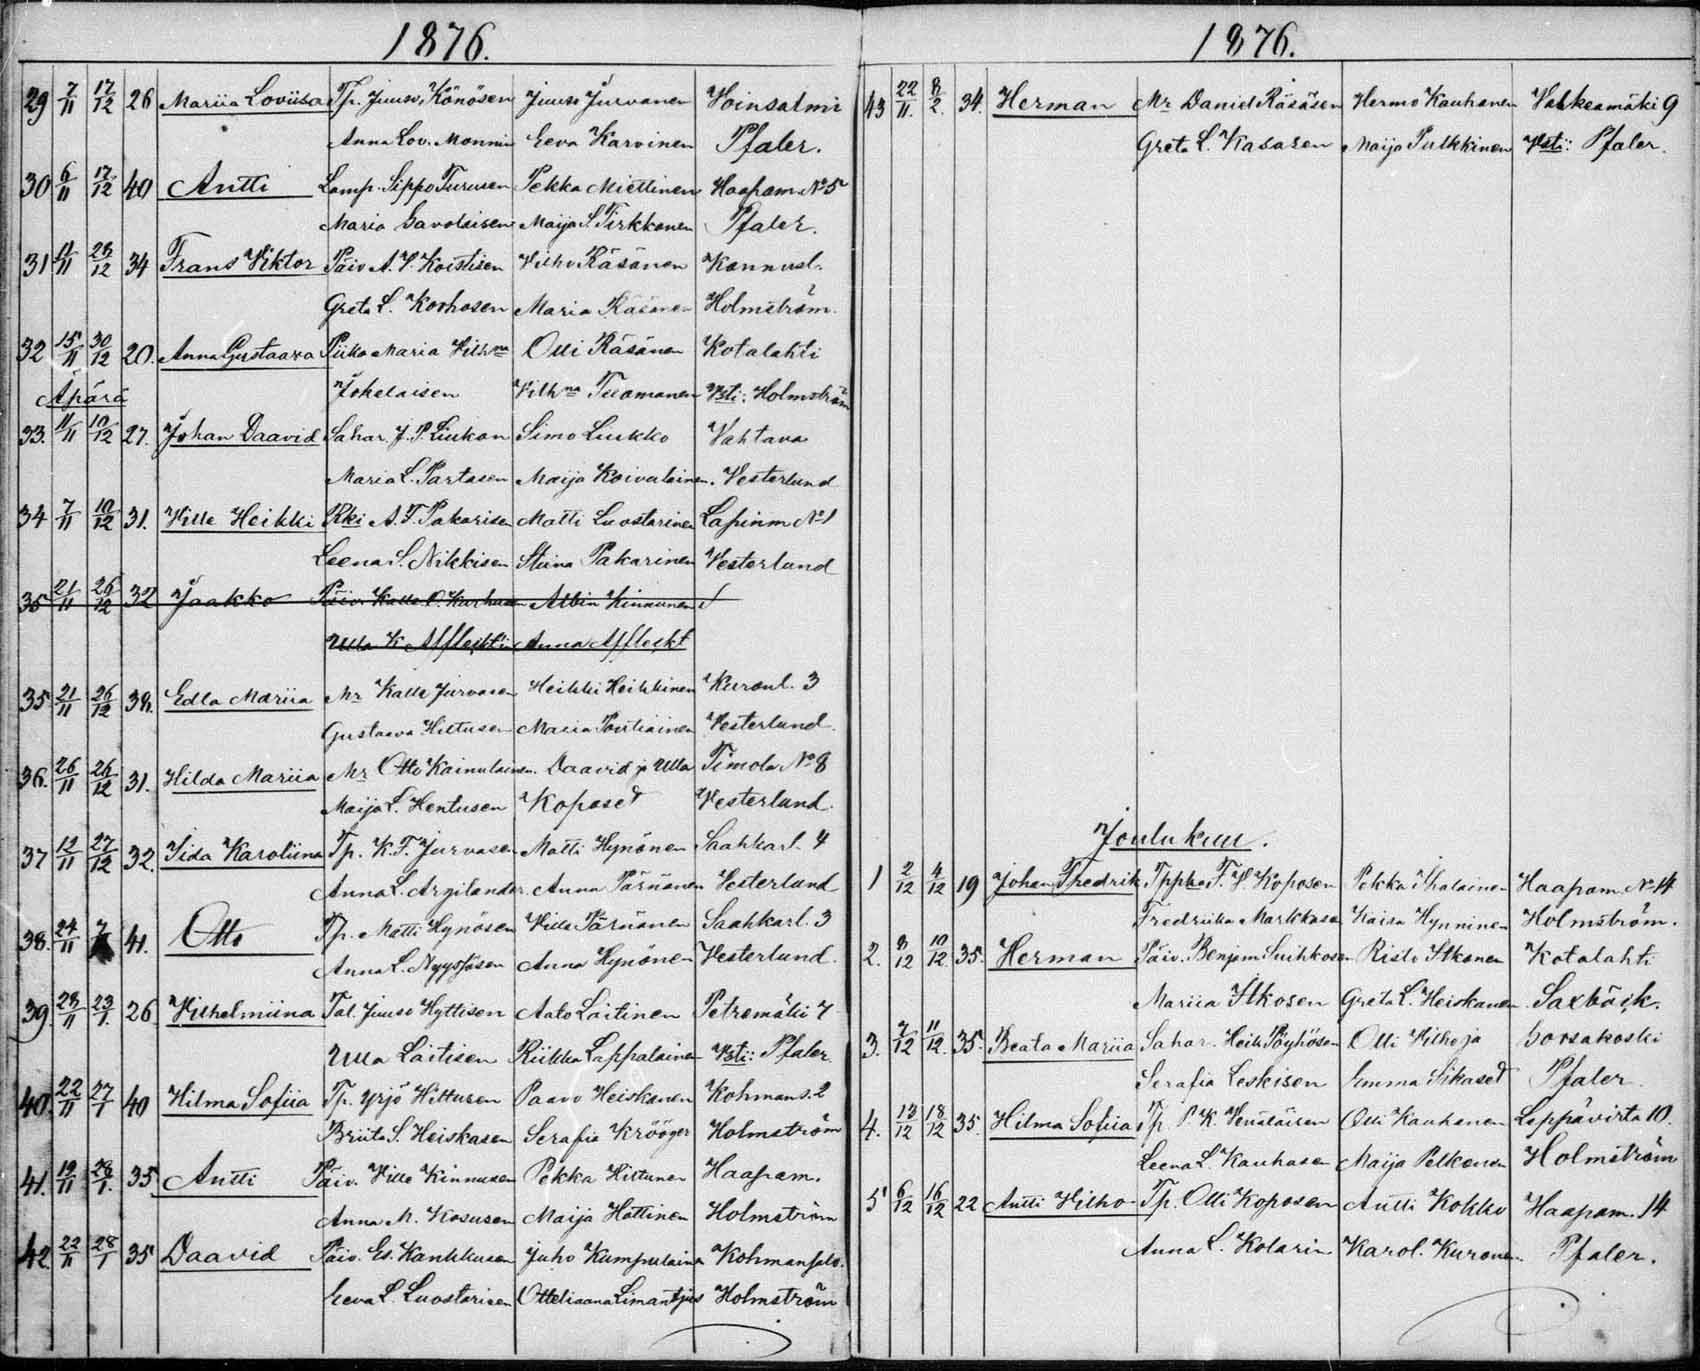 1876.
29 7/11 17/12 26 Mariia Loviisa Tp. Juuso Könösen Juuso Jurvanen Voinsalmi
Anna Lov. Monnin Eeva Karvinen Pfaler.
30 6/11 17/12 40 Antti Lamp. Sippo Turusen Pekka Miettinen Haapam. No 5
Maria Savolaisen Maija S. Tirkkonen Pfaler.
31 11/11 28/12 34 Frans Viktor Päiv A. V. Koistisen Vilho Räsänen Konnusl.
Greta L. Korhosen Maria Räsänen Holmström.
32 15/11 30/12 20. Anna Gustaava Piika Maria Vilhna Olli Räsänen Kotalahti
Äpärä Jokelaisen Vilhna Tuomanen Vsti: Holmström
33. 11/11 10/12 27. Johan Daavid Sahar. J. P. Liukon Simo Liukko Vahtava
Maria L. Partasen Maija Koivalainen. Vesterlund
34 7/11 10/12 31. Ville Heikki Rki A. F. Pakarisen Matti Luostarinen Lapinm No 1
Leena S. Nikkisen Stiina Pakarinen Vesterlund
35 21/11 26/12 32 Jaakko Päiv. Kalle O. Karhusen Albin Kinnunen
Ulla K Afflecktin Anna Affleckt
35 21/11 26/12 39. Edla Mariia Mr Kalle Jurvasen Heikki Heikkinen Kuronl. 3
Gustaava Hiltusen Maria Poutiainen Vesterlund.
36. 26/11 26/12 31. Hilda Mariia Mr Otto Kainulainen. Daavid ja Ulla Timola No 8
Maija L. Hentusen Koposet Vesterlund.
37 12/11 27/12 32. Iida Karoliina Tp. K. F. Jurvasen Matti Hynönen Saahkarl. 4
Anna L. Argilander. Anna Pärnänen Vesterlund
38. 24/11 7 41. Otto Tp. Matti Hynösen Vilde Pärnänen Saahkarl. 3
Anna L. Nyyssösen Anna Hynönen Vesterlund.
39. 28/11 23/1. 26 Vilhelmiina Tal. Juuso Hyttisen Aato Laitinen Petromäki 7
Ulla Laitisen Riikka Lappalainen Vsti: Pfaler
40. 22/11 27/1 40 Hilma Sofiia Tp. Yrjö Hiltusen Paavo Heiskanen Kohmans. 2
Briita S. Heiskasen Serafia Krööger Holmström
41. 19/11 28/1. 35 Antti Päiv. Ville Kinnusen Pekka Hiltunen Haapam.
Anna M. Kosusen Maija Hottinen Holmström
42. 22/11 28/1 35 Daavid Päiv. Es. Kankkusen Juho Kumpulainen Kohmansalo.
Eeva L. Luostarisen Otteliaana Limantjus Holmström
1876.
43 22/11. 8/2. 34. Herman Mr Daniel Räsäsen Hermo Kauhanen Valkeamäki 9
Greta L. Kasasen Maija Pulkkinen Vsti: Pfaler.
Joulukuu.
1 2/12 4/12 19 Johan Fredrik Tppka F. V. Koposen Pekka Ihalainen Haapam. No 14
Fredriika Markkasen Kaisa Hynninen Holmström.
2. 8/12 10/12. 35. Herman Päiv. Benjam Suihkosen Risto Itkonen Kotalahti
Mariia Itkosen Greta L. Heiskanen Saxbäck.
3. 7/12 11/12. 35. Beata Mariia Sahar. Heik Pöyhösen Olli Vilho ja Sorsakoski
Serafia Leskisen Emma Sikaset Pfaler.
4. 13/12 18/12 35. Hilma Sofiia Tp P. K. Venäläisen Olli Kauhanen Leppävirta 10.
Leena L. Kauhasen Maija Pelkonen Holmström
5 6/12 16/12 22 Antti Vilho Tp. Olli Koposen Antti Kokko Haapam. 14
Anna L. Kolarin Karol. Kuronen. Pfaler.